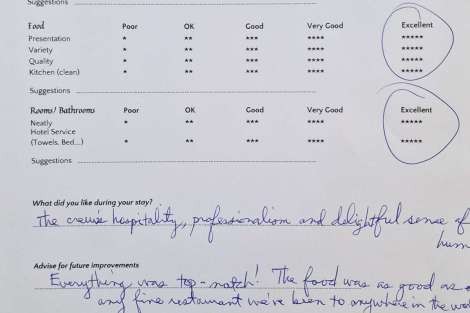 Suggestions
Food Poor OK Good Very Good Excellent
Presentation * ** *** **** *****
Variety * ** *** **** *****
Quality * ** *** **** *****
Kitchen (clean) * ** *** **** *****
Suggestions
Rooms/ Bathrooms Poor OK Good Very Good Excellent
Neatly * ** *** **** *****
Hotel Service
(Towels, Bed....) * ** *** **** *****
Suggestions
What did you like during your stay?
The crew's hospitality, professionalism and delightful sense of
hum
Advise for future improvements
Everything was top-notch! The food was as good as
any fine restaurant we've been to anywhere in the wo